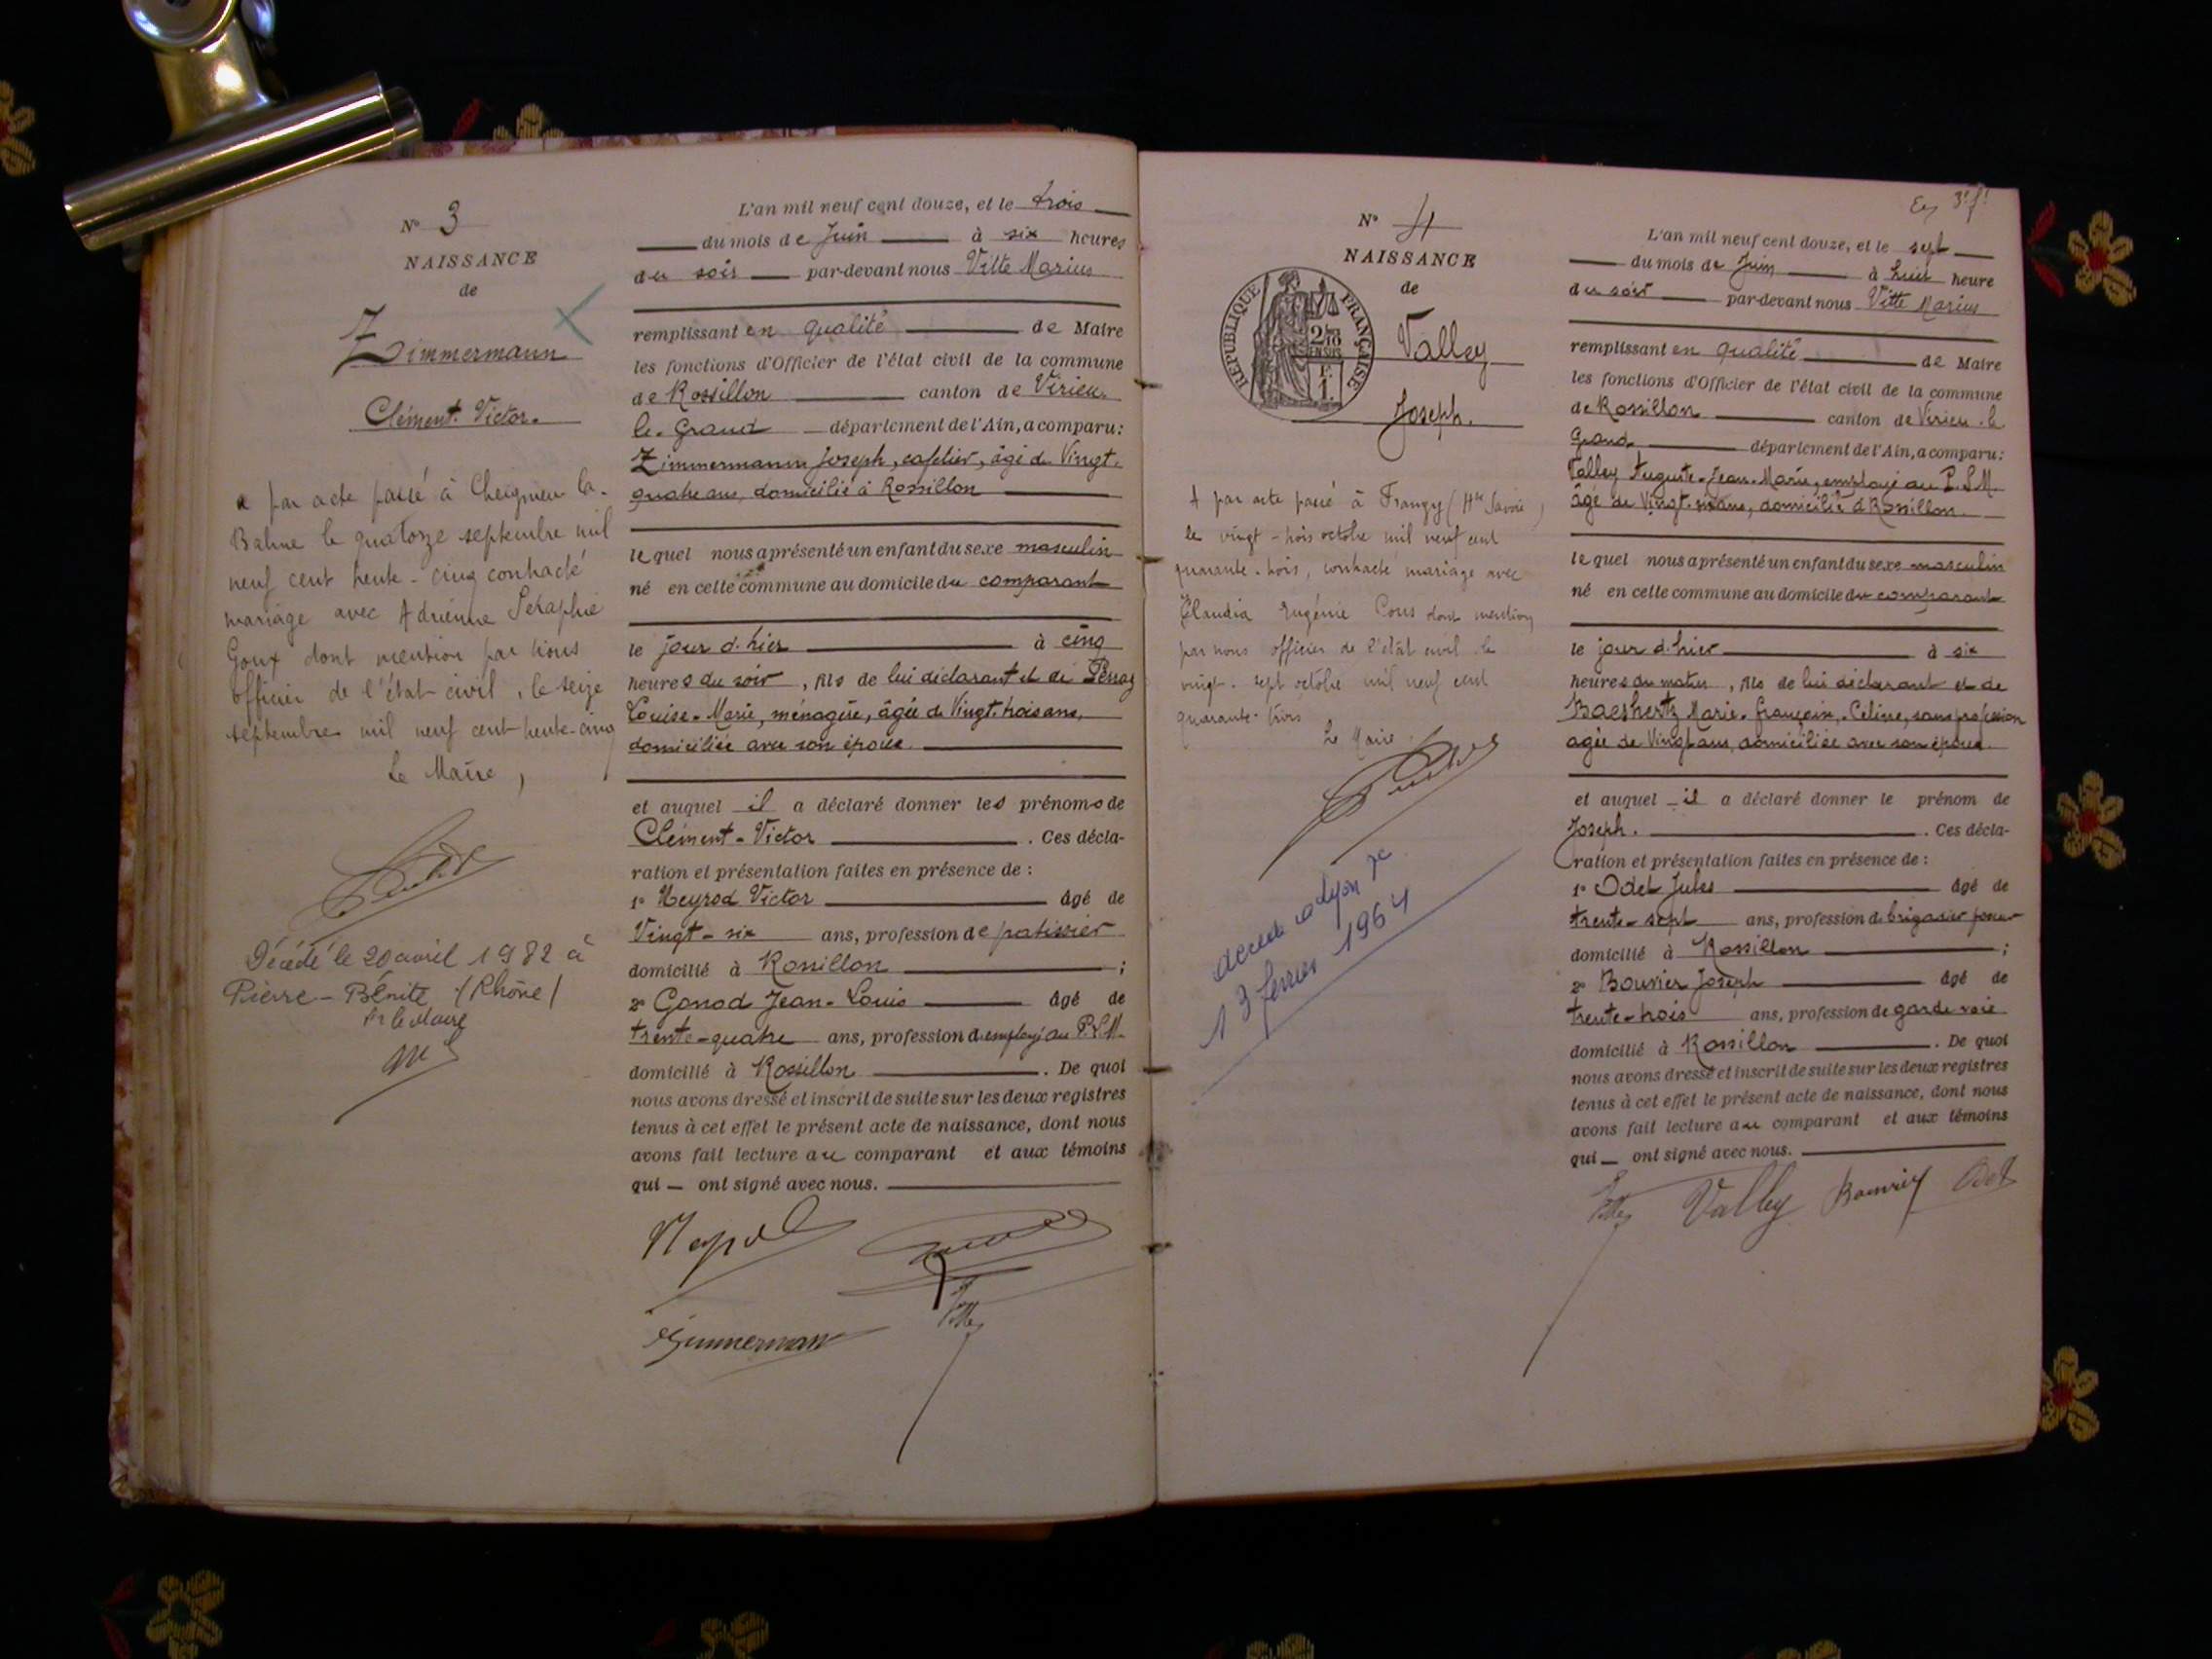 N° 3
NAISSANCE
de
Zimmermann
Clément. Victor.
a par acte passé à Cheignieu la.
Balme le quatorze septembre mil
neuf cent trente-cinq contracté
mariage avec Adrienne Séraphie
Goux dont mention par nous
officier de l'état civil, le seize
septembre mil neuf cent trente-cinq
Le Maire,
Décédé le 20 avril 1982 à
Pierre-Bénite (Rhône)
Pr le Maire
L'an mil neuf cent douze, et le trois
du mois de Juin à six heures
du soir par-devant nous Vitte Marius
remplissant en qualité de Maire
les fonctions d'Officier de l'état civil de la commune
de Rossillon canton de Virieu.
le. Grand département de l'Ain, a comparu:
Zimmermann Joseph, cafetier, âgé de Vingt.
quatre ans, domicilié à Rossillon
lequel nous a présenté un enfant du sexe masculin
né en cette commune au domicile du comparant
le jour d'hier à cinq
heures du soir, fils de lui déclarant et de
Louise-Marie, ménagère, âgée de Vingt-trois ans,
domiciliée avec son époux.
et auquel il a déclaré donner les prénoms de
Clément-Victor. Ces décla-
ration et présentation faites en présence de :
1° Neyrod Victor âgé de
Vingt-six ans, profession de patissier
domicilié à Rossillon ;
2° Gonod Jean-Louis âgé de
trente-quatre ans, profession d'employé au P.L.M.
domicilié à Rossillon. De quoi
nous avons dressé et inscrit de suite sur les deux registres
tenus à cet effet le présent acte de naissance, dont nous
avons fait lecture au comparant et aux témoins
qui ont signé avec nous.
Zimmerman
Vitte
N° 4
NAISSANCE
de
RÉPUBLIQUE FRANÇAISE
2/10
EN SUS
F.
1.
Valley
Joseph.
A par acte passé à Frangy (Hte Savoie)
le vingt-trois octobre mil neuf cent
quarante-trois, contracté mariage avec
Claudia Eugénie Cons dont mention
par nous officier de l'état civil le
vingt-sept octobre mil neuf cent
quarante-trois
Le Maire
décédé à Lyon 7e
13 février 1964
L'an mil neuf cent douze, et le sept
du mois de Juin à huit heure
du soir par-devant nous Vitte Marius
remplissant en qualité de Maire
les fonctions d'Officier de l'état civil de la commune
de Rossillon canton de Virieu-le
Grand département de l'Ain, a comparu:
Valley Auguste-Jean-Marie, employé au P.L.M.
âgé de Vingt-six ans, domicilié à Rossillon.
lequel nous a présenté un enfant du sexe masculin
né en cette commune au domicile du comparant
le jour d'hier à six
heures du matin, fils de lui déclarant et de
Baeshertz Marie. Françoise. Celine, sans profession
agée de Vingt ans, domiciliée avec son époux.
et auquel il a déclaré donner le prénom de
Joseph. Ces décla-
ration et présentation faites en présence de :
1° Odet Jules âgé de
trente-sept ans, profession de brigadier poseur
domicilié à Rossillon ;
2° Bouvier Joseph âgé de
trente-trois ans, profession de garde voie
domicilié à Rossillon. De quoi
nous avons dressé et inscrit de suite sur les deux registres
tenus à cet effet le présent acte de naissance, dont nous
avons fait lecture au comparant et aux témoins
qui ont signé avec nous.
Vitte Valley Bouvier Odet